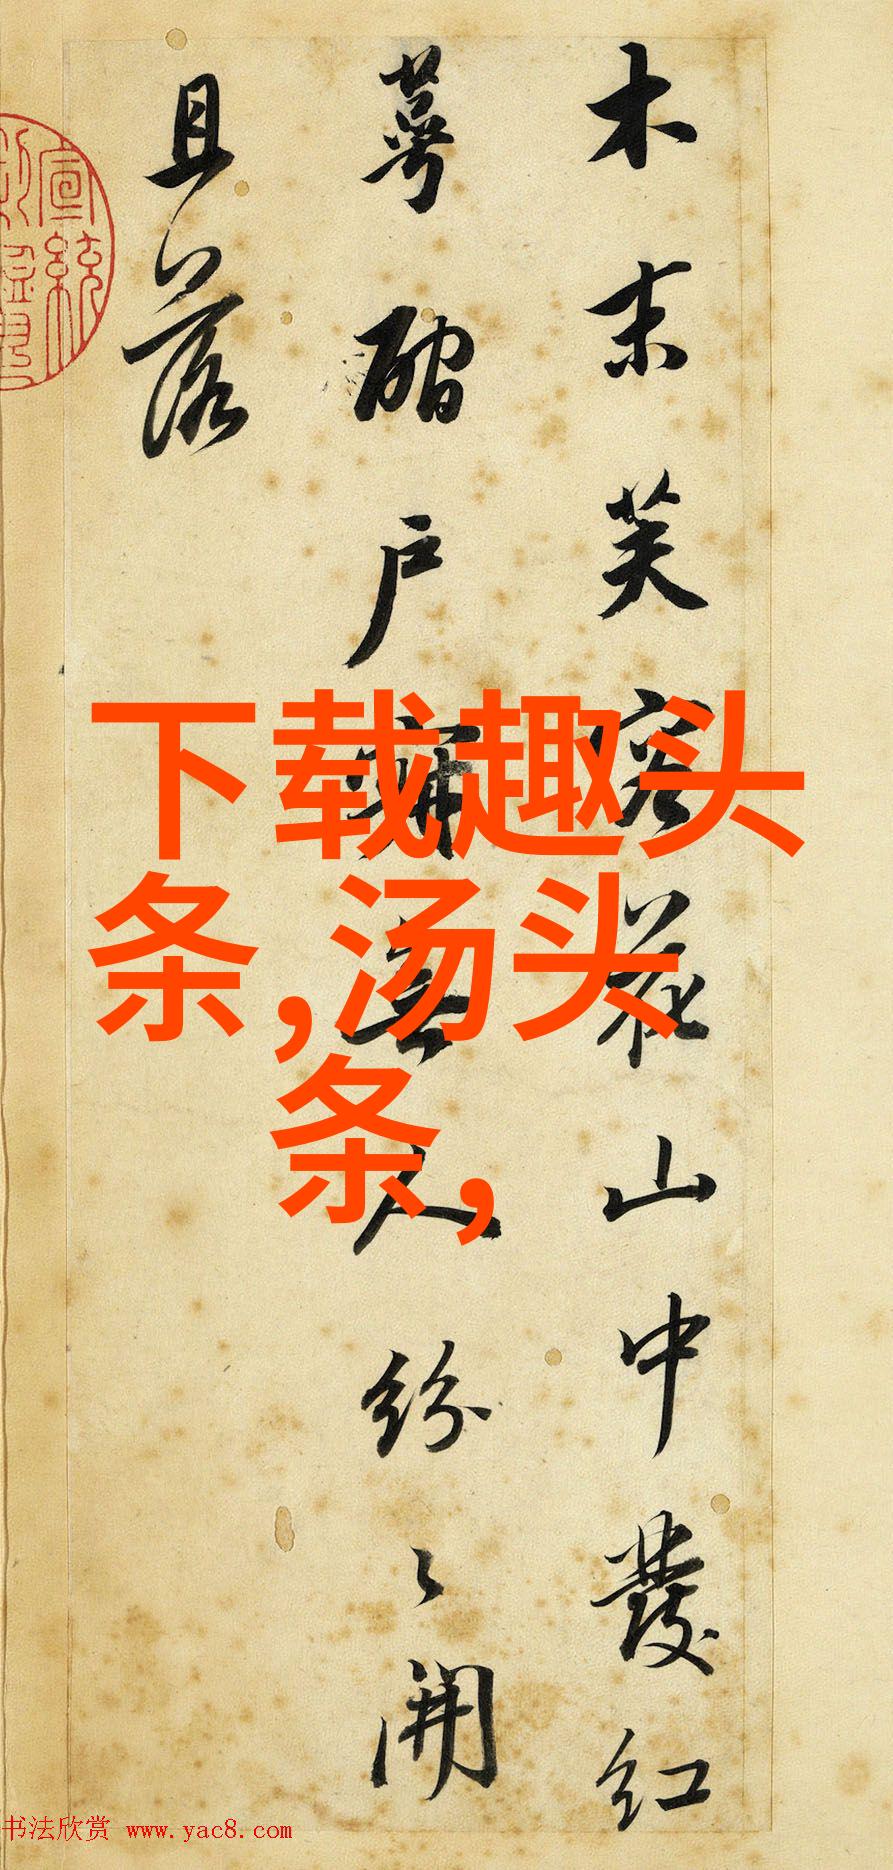 木末芙容花山中發红
萼磵户無人紛々開
且落
宣統
下载趣头
条,汤头
条,
书法欣赏 www.yac8.com